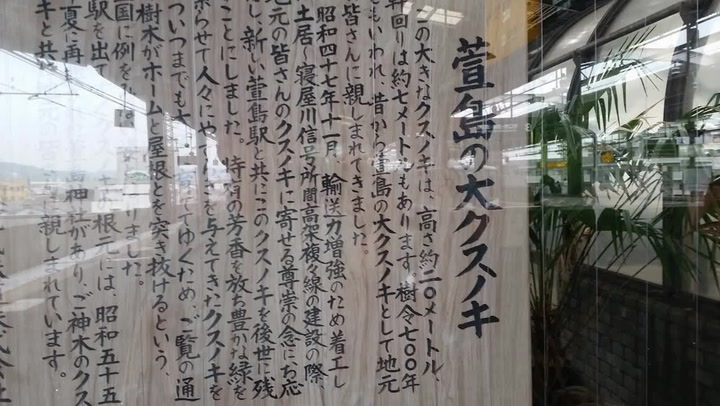 萱島の大クスノキ
の大きなクスノキは、高さ約二〇メートル、
幹回りは約七メートルもあります。樹令七〇〇年
ともいわれ、昔から萱島の大クスノキとして地元
皆さんに親しまれてきました。
昭和四十七年十一月、輸送力増強のため着工し
土居〜寝屋川信号所間高架複々線の建設の際、
地元の皆さんのクスノキに寄せる尊崇の念にお応
えし、新しい萱島駅と共にこのクスノキを後世に残
ことにしました。特有の芳香を放ち豊かな緑を
らせて人々にやすらぎを与えてきたクスノキを
ついつまでも大 ててゆくため、ご覧の通
樹木がホームと屋根とを突き抜けるという、
国に例を りました。
駅を出て 根元には、昭和五十五
夏に再 神社があり、ご神木のクス
キと共に に親しまれています。
株式会社